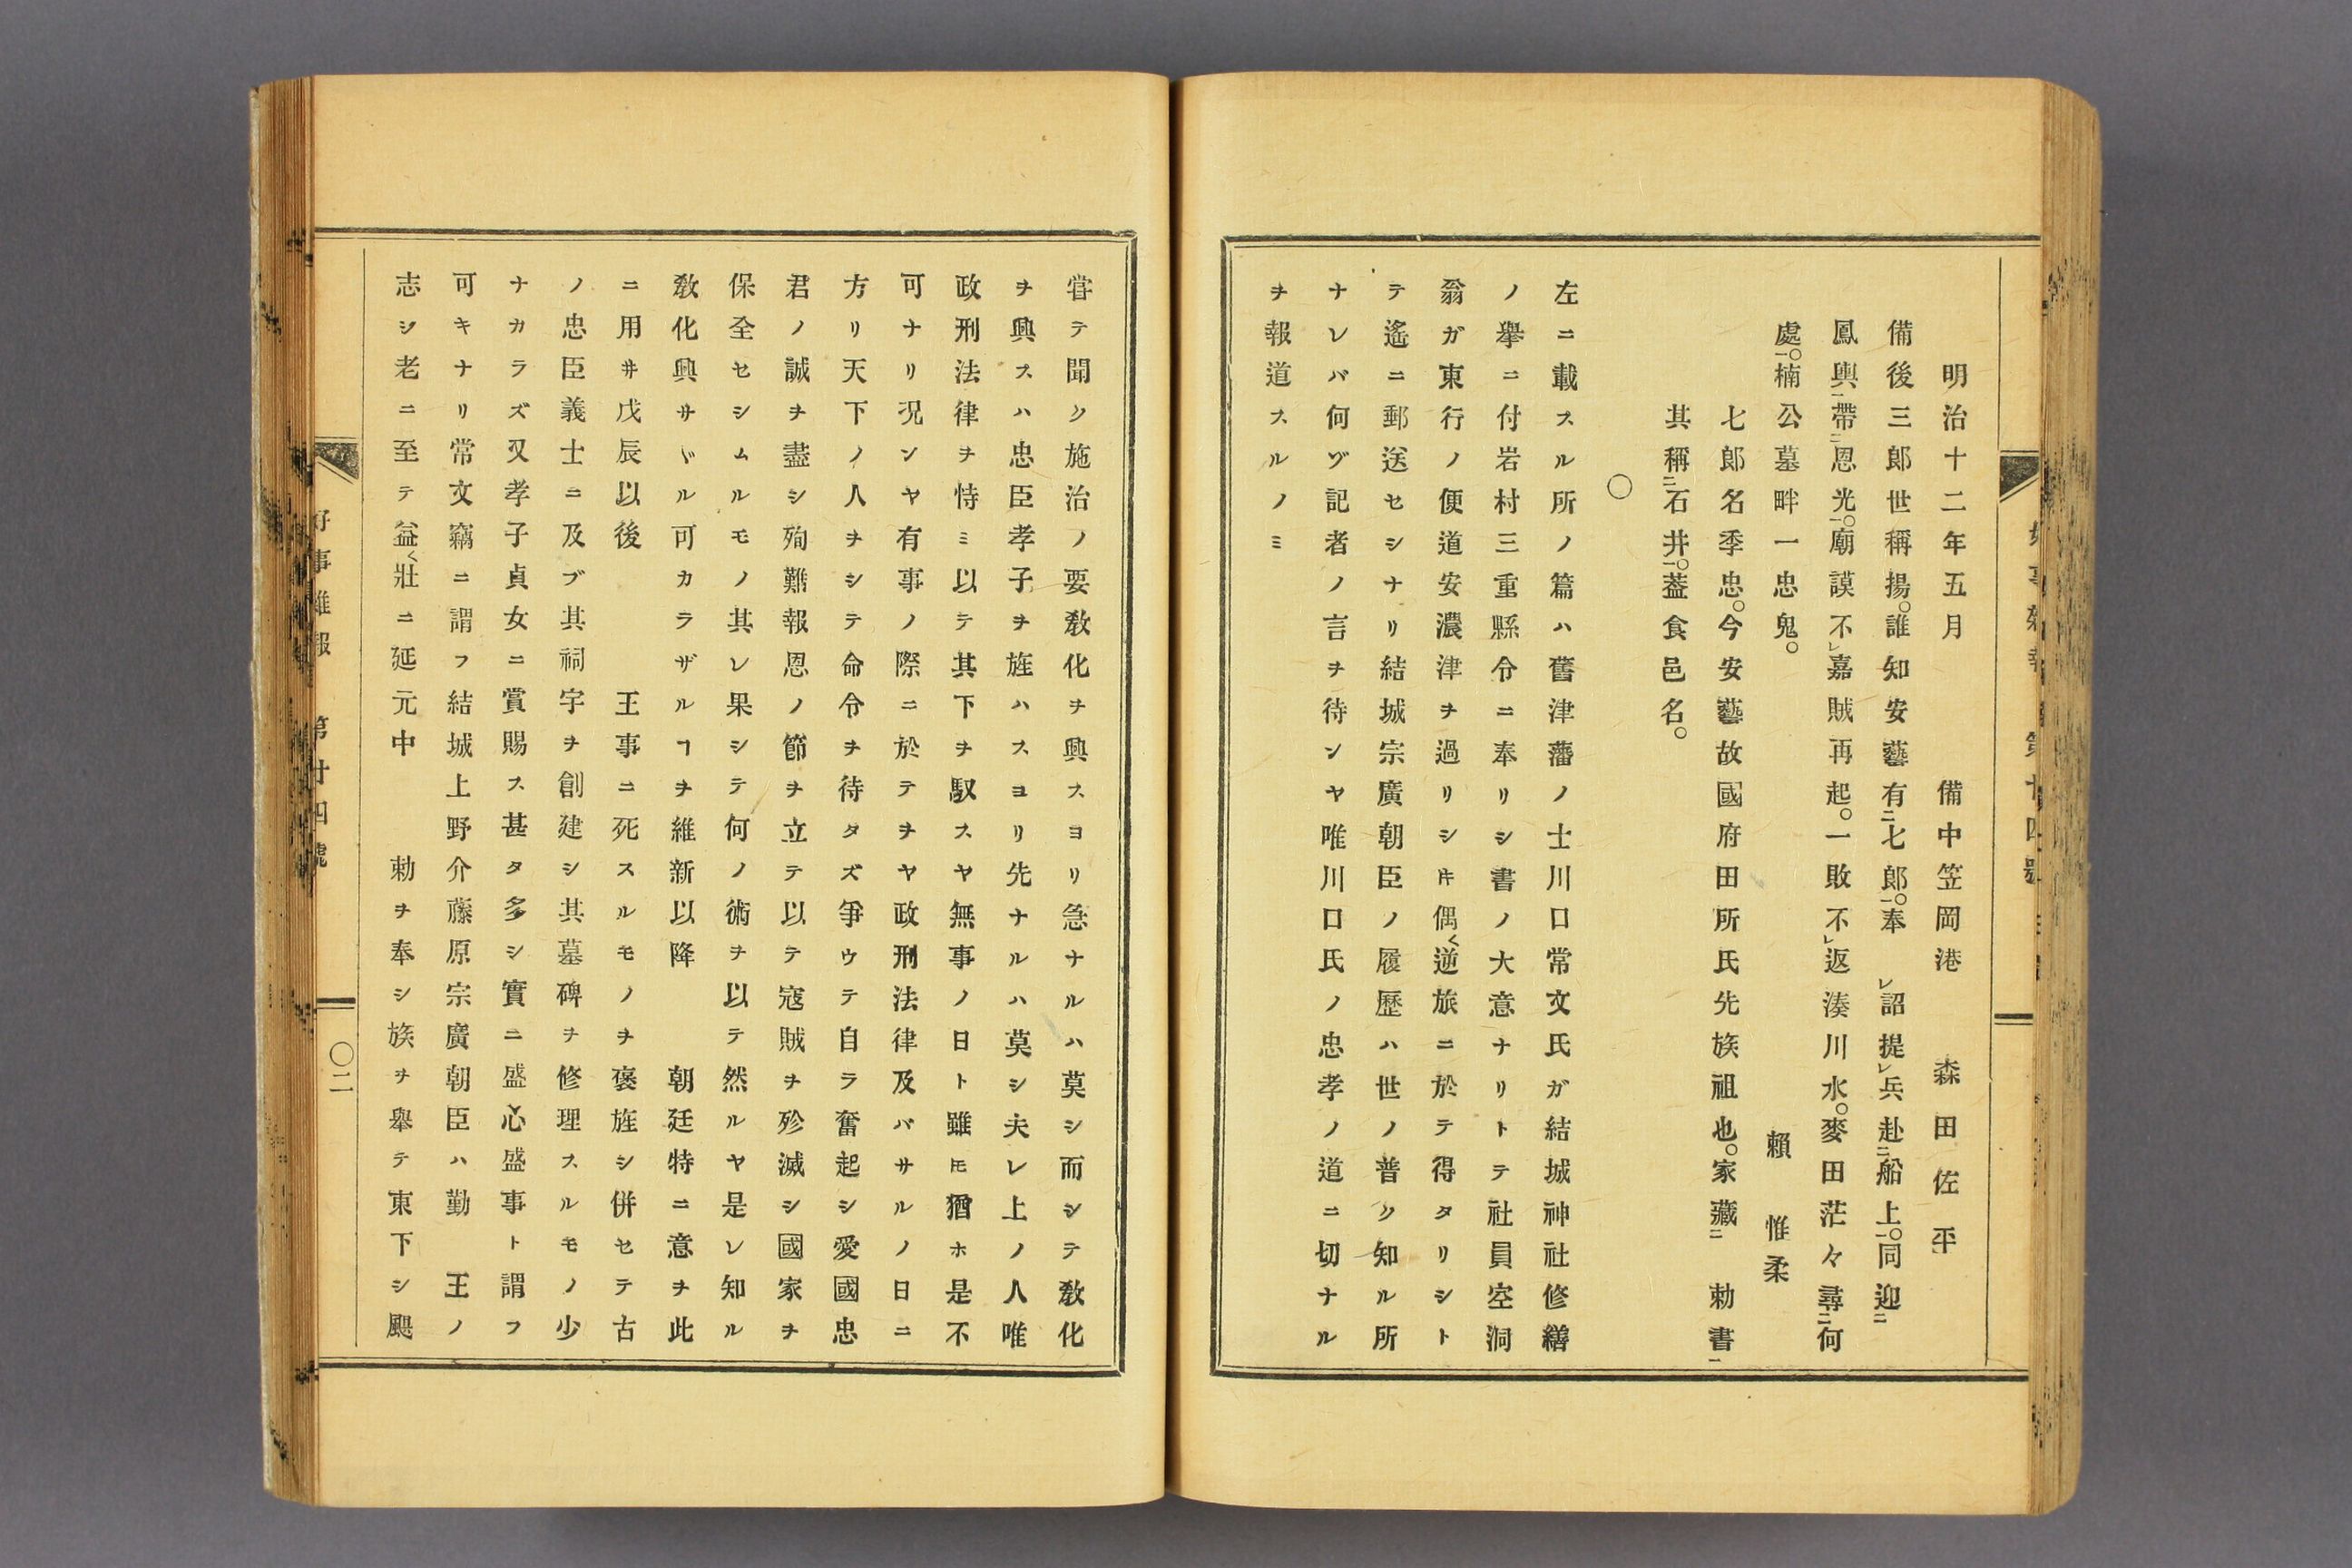 明治十二年五月　備中笠岡港　森田佐平
備後三郎世稱揚。誰知安藝有二七郎一。奉　レ詔提レ兵赴二船上一。同迎二
鳳輿一帶二恩光一。廟謨不レ嘉賊再起。一敗不レ返湊川水。麥田茫々尋二何
處一。楠公墓畔一忠鬼。　賴惟柔
七郎名季忠。今安藝故國府田所氏先族祖也。家藏二　勅書一
其稱二石井一。葢食邑名。
〇
左ニ載スル所ノ篇ハ舊津藩ノ士川口常文氏ガ結城神社修繕
ノ擧ニ付岩村三重縣令ニ奉リシ書ノ大意ナリトテ社員空洞
翁ガ東行ノ便道安濃津ヲ過リシ𪜈偶〱逆旅ニ於テ得タリシト
テ遙ニ郵送セシナリ結城宗廣朝臣ノ履歷ハ世ノ普ク知ル所
ナレバ何ゾ記者ノ言ヲ待ンヤ唯川口氏ノ忠孝ノ道ニ切ナル
ヲ報道スルノミ
甞テ聞ク施治ノ要敎化ヲ興スヨリ急ナルハ莫シ而シテ敎化
ヲ興スハ忠臣孝子ヲ旌ハスヨリ先ナルハ莫シ夫レ上ノ人唯
政刑法律ヲ恃ミ以テ其下ヲ馭スヤ無事ノ日ト雖𪜈猶ホ是不
可ナリ況ンヤ有事ノ際ニ於テヲヤ政刑法律及バサルノ日ニ
方リ天下ノ人ヲシテ命令ヲ待タズ爭ウテ自ラ奮起シ愛國忠
君ノ誠ヲ盡シ殉難報恩ノ節ヲ立テ以テ寇賊ヲ殄滅シ國家ヲ
保全セシムルモノ其レ果シテ何ノ術ヲ以テ然ルヤ是レ知ル
敎化興サヾル可カラザルヿヲ維新以降　朝廷特ニ意ヲ此
ニ用井戊辰以後　王事ニ死スルモノヲ褒旌シ併セテ古
ノ忠臣義士ニ及ブ其祠宇ヲ創建シ其墓碑ヲ修理スルモノ少
ナカラズ又孝子貞女ニ賞賜ス甚タ多シ實ニ盛心盛事ト謂フ
可キナリ常文竊ニ謂フ結城上野介藤原宗廣朝臣ハ勤　王ノ
志シ老ニ至テ益〱壯ニ延元中　勅ヲ奉シ族ヲ舉テ東下シ颶
好事雜報　第廿四號　〇二